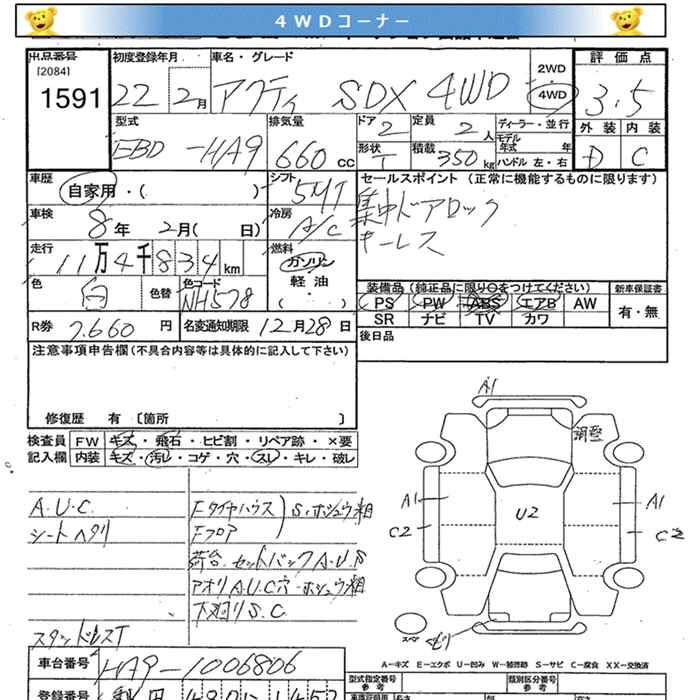 4WDコーナー
出品番号 初度登録年月 車名・グレード 2WD 評価点
[2084]
1591 22 2月 アクティ SDX 4WD 4WD 3.5
型式 排気量 ドア 2 定員 2人 ディーラー・並行 外装 内装
EBD-HA9 660cc 形状 T 積載 350kg モデル年式 年 D C
ハンドル 左・右
車歴 シフト セールスポイント (正常に機能するものに限ります)
自家用・( ) 5MT 集中ドアロック
車検 冷房 キーレス
8年 2月( 日) A/C
走行 燃料
11万4千834km ガソリン
軽油
・( )
色 白 色替 色コード NH578
装備品(純正品に限り○をつけてください) 新車保証書
PS PW ABS エアB AW 有・無
SR ナビ TV カワ
R券 7.660円 名変通知期限 12月28日 後日品
注意事項申告欄(不具合内容等は具体的に記入して下さい)
修復歴 有 〔箇所 〕
検査員 FW キズ・飛石・ヒビ割・リペア跡・×要
記入欄 内装 キズ・汚レ・コゲ・穴・スレ・キレ・破レ
A.U.C
シートヘタリ
スタンドレスT
Fタイヤハウス
Fフロア
S.ホシュウ相
荷台.セットバックA.U.S
アオリA.U.C穴.ホシュウ相
下廻りS.C
A1
調整
A1 A1
C2 U2 C2
スペ
A−キズ E−エクボ U−凹み W−補修跡 S−サビ C−腐食 XX−交換済
車台番号 HA9-1006806
型式指定番号 参考 類別区分番号 参考
登録番号 長さ 幅 高さ